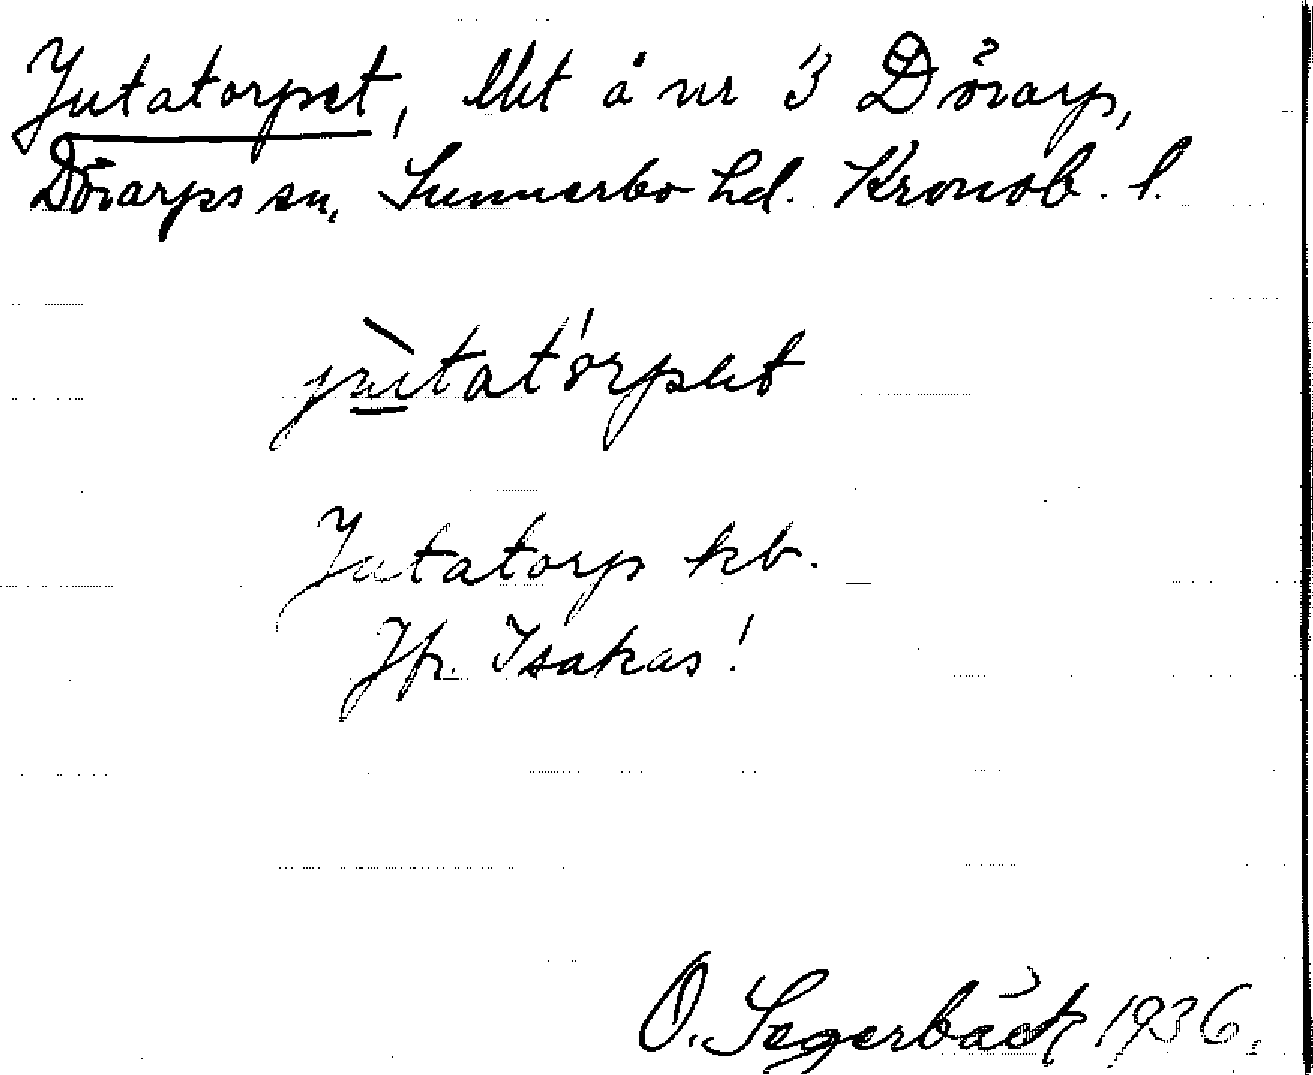 Jutatorpet, lht å nr 3 Dörarp,
Dörarps sn, Sunnerbo hd. Kronob. l.
jùtatórpet
Jutatorp kb.
Jfr. Isakas!
O. Segerbäck 1936.